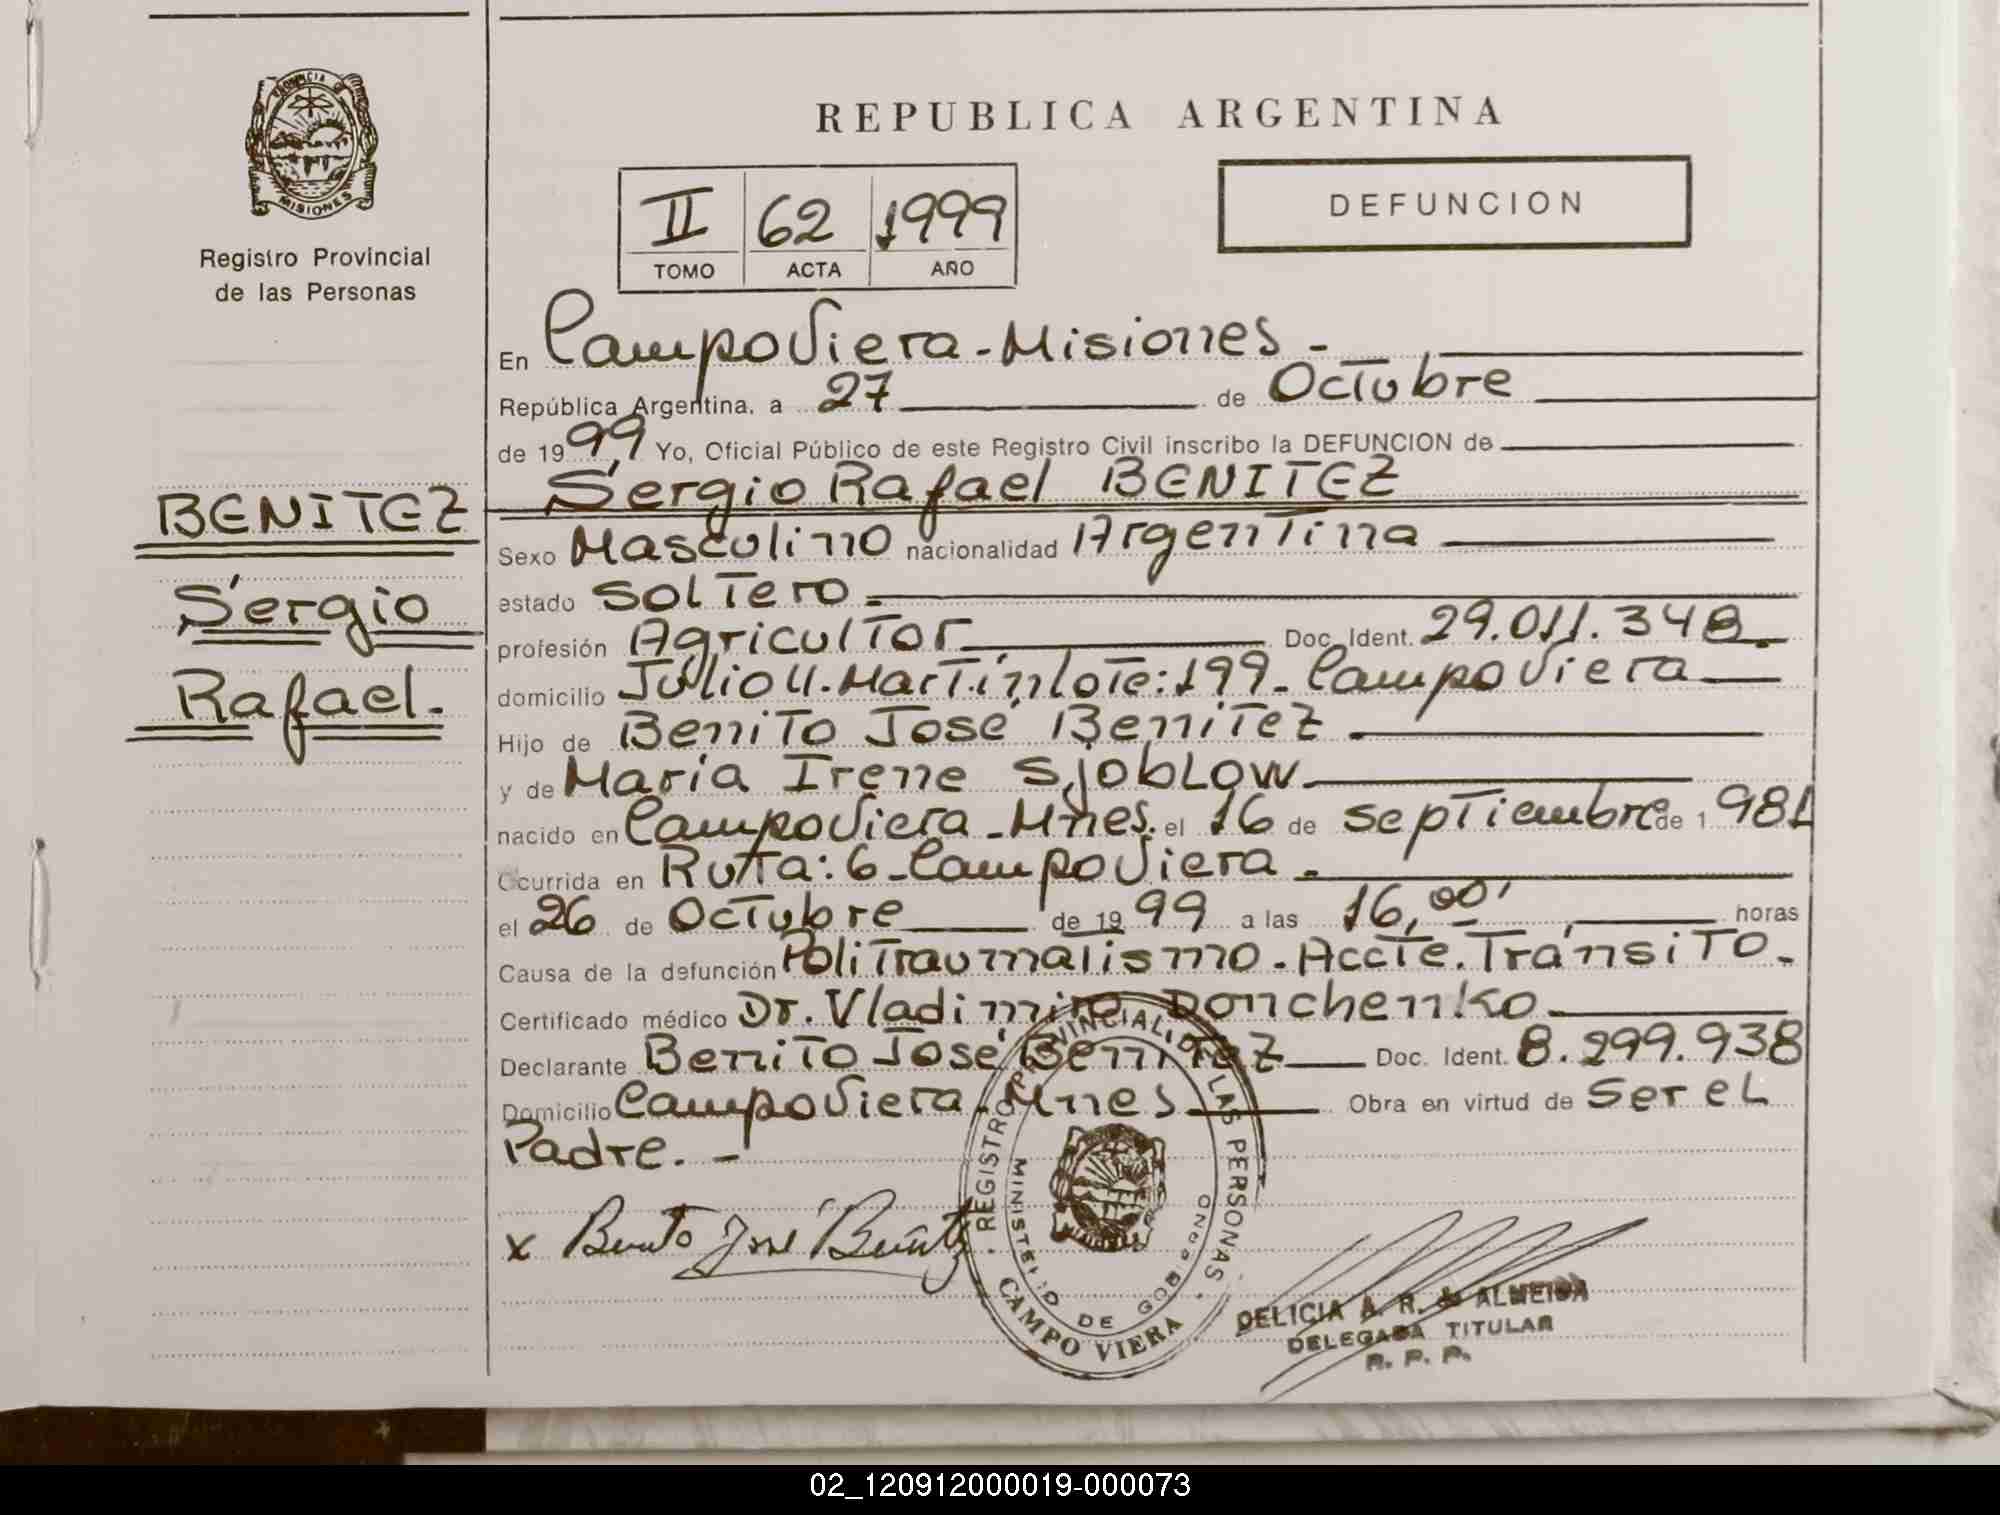 PROVINCIA DE
MISIONES
Registro Provincial
de las Personas
BENITEZ
Sergio
Rafael.-
REPUBLICA ARGENTINA
II 62 1999
TOMO ACTA AÑO
DEFUNCION
En Campo Viera - Misiones -
República Argentina, a 27 de Octubre
de 1999, Yo, Oficial Público de este Registro Civil inscribo la DEFUNCION de
Sergio Rafael BENITEZ
Sexo Masculino nacionalidad Argentina
estado soltero.
profesión Agricultor Doc. Ident. 29.011.348.
domicilio Julio U. Martin lote: 199 - Campo Viera
Hijo de Benito José Benitez.
y de María Irene Sjoblow
nacido en Campo Viera - Mnes. el 16 de septiembre de 1981
Ocurrida en Ruta: 6 - Campo Viera.
el 26 de Octubre de 1999 a las 16,00' horas
Causa de la defunción Politraumatismo - Accte. Tránsito -
Certificado médico Dr. Vladimiro Donchenko
Declarante Benito José Benitez Doc. Ident. 8.299.938
Domicilio Campo Viera - Mnes Obra en virtud de ser el
Padre. -
x Benito José Benitez
REGISTRO PROVINCIAL DE LAS PERSONAS
MINISTERIO DE GOBIERNO
CAMPO VIERA
DELICIA A. R. de ALMEIDA
DELEGADA TITULAR
R. P. P.
02_120912000019-000073